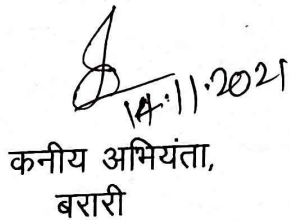 14.11.2021
कनीय अभियंता,
बरारी